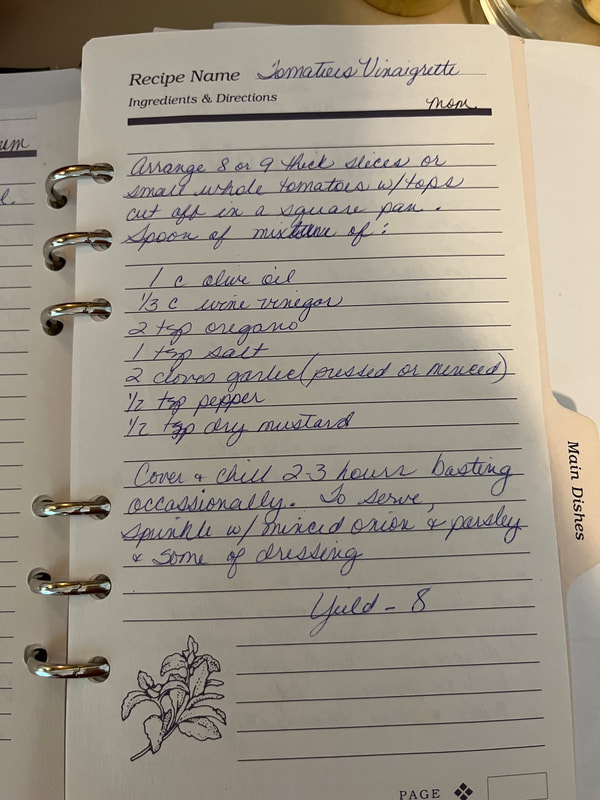 Recipe Name Tomatoes Vinaigrette
Ingredients & Directions
mom.
Arrange 8 or 9 thick slices or
small whole tomatoes w/tops
cut off in a square pan.
Spoon of mixture of:
1 c olive oil
1/3 c wine vinegar
2 tsp oregano
1 tsp salt
2 cloves garlic (pressed or minced)
1/2 tsp pepper
1/2 tsp dry mustard
Cover & chill 2-3 hours basting
occassionally. To serve,
sprinkle w/ minced onion & parsley
& some of dressing
Yield - 8
Main Dishes
PAGE